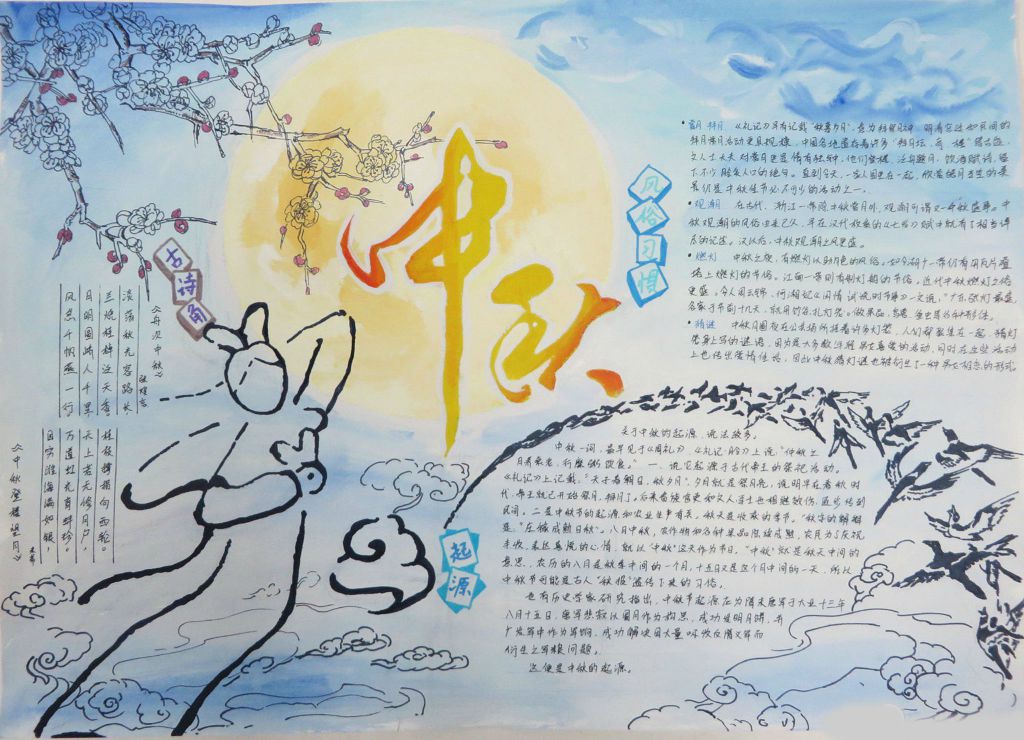 中秋
风俗习惯
·赏月 拜月 《礼记》早有记载"秋暮夕月",意为拜祭月神。明清之后如民间的
拜月赏月活动更具规模,中国各地遗存着许多"拜月坛、
文人士大夫对赏月更是情有独钟,他们登楼、泛舟邀月,饮酒赋诗,留
下不少脍炙人口的绝句。直到今天,一家人围坐在一起,欣赏皓月当空的美
景仍是中秋佳节必不可少的活动之一。
·观潮 在古代,浙江一带,除中秋赏月外,观潮可谓又一中秋盛事。中
秋观潮的风俗由来已久,早在汉代枚乘的《七发》赋中就有了相当详
尽的记述。汉以后,中秋观潮之风更盛。
·燃灯 中秋之夜,有燃灯以助月色的风俗。如今湖广一带仍有用瓦片叠
塔上燃灯的节俗。江南一带则有制灯船的节俗。近代中秋燃灯之俗
更盛。今人周云锦、何湘妃《闲情试说时节事》一文说:"广东张灯最盛,
各家于节前十几天,就用竹条扎灯笼。做果品、鸟兽、鱼虫等
·猜谜 中秋月圆夜在公共场所挂着许多灯笼,人们都聚集在一起,猜灯
笼身上写的谜语,因为是大多数年轻男女喜爱的活动,同时在这些活动
上也传出爱情佳话,因此中秋猜灯谜也被衍生了一种男女相恋的形式。
古诗角
《舟次中秋》
张煌言
淡荡秋光客路长
三
月明圆峤人千里
风急千帆燕一行
《中秋登楼望月》
米芾
目穷淮海满如银,
万道虹光育蚌珍。
天上若无修月户,
桂枝撑损向西轮。
起源
关于中秋的起源,说法较多。
中秋一词,最早见于《周礼》,《礼记·月令》上说:"仲秋之
月养衰老,行糜粥饮食。"一、说它起源于古代帝王的祭祀活动。
《礼记》上记载:"天子春朝日,秋夕月",夕月就是祭月亮,说明早在春秋时
代,帝王就已开始祭月、拜月了。后来贵族官吏和文人学士也相继效仿,逐步传到
民间。二是中秋节的起源和农业生产有关。秋天是收获的季节。"秋"字的解释
是:"庄稼成熟曰秋"。八月中秋,农作物和各种果品陆续成熟,农民为了庆祝
丰收,表达喜悦的心情,就以"中秋"这天作为节日。"中秋"就是秋天中间的
意思,农历的八月是秋季中间的一个月,十五日又是这个月中间的一天,所以
中秋节可能是古人"秋报"遗传下来的习俗。
也有历史学家研究指出,中秋节起源应为隋末唐军于大业十三年
八月十五日,唐军裴寂以圆月作为构思,成功发明月饼,并
广发军中作为军饷,成功解决因大量吸收反隋义军而
衍生之军粮问题。
这便是中秋的起源。